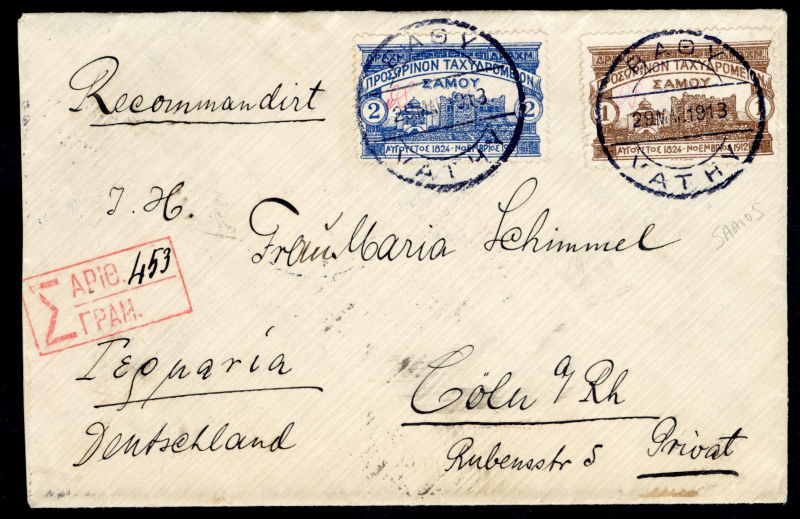 Recommandirt
ΔΡΑΧΜ
ΠΡΟΣΩΡΙΝΟΝ ΤΑΧΥΔΡΟΜΕΙΟΝ
ΣΑΜΟΥ
2 2
ΑΥΓΟΥΣΤΟΣ 1824 - ΝΟΕΜΒΡΙΟΣ
ΒΑΘΥ
1913
VATHY
ΔΡΑΧΜ
ΠΡΟΣΩΡΙΝΟΝ ΤΑΧΥΔΡΟΜΕΙΟΝ
ΣΑΜΟΥ
1 1
ΑΥΓΟΥΣΤΟΣ 1824 - ΝΟΕΜΒΡΙΟΣ 1912
ΒΑΘΥ
29 1913
VATHY
I. H.
Frau Maria Schimmel
SAMOS
Σ ΑΡΙΘ. 453
ΓΡΑΜ.
Γερμανία
Cöln a/Rh
Deutschland
Rubensstr 5 Privat